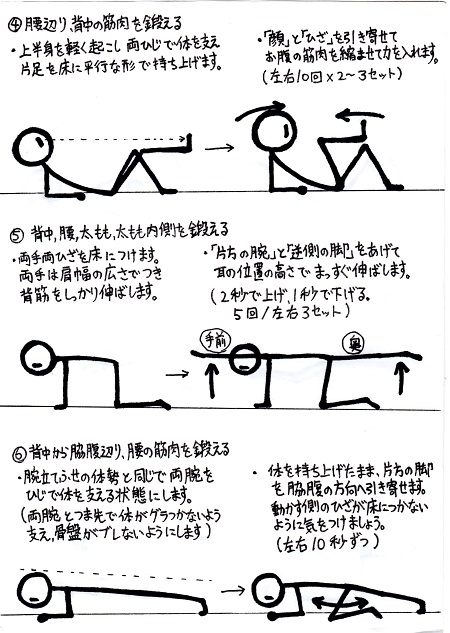 ④ 腰辺り、背中の筋肉を鍛える
・上半身を軽く起こし 両ひじで体を支え
片足を床に平行な形で持ち上げます。
・「顔」と「ひざ」を引き寄せて
お腹の筋肉を縮ませて力を入れます。
(左右10回×2〜3セット)
⑤ 背中,腰,太もも,太もも内側を鍛える
・両手両ひざを床につけます。
両手は肩幅の広さでつき
背筋をしっかり伸ばします。
・「片方の腕」と「逆側の脚」をあげて
耳の位置の高さで まっすぐ伸ばします。
(2秒で上げ、1秒で下げる。
5回/左右3セット)
手前
奥
⑥ 背中から脇腹辺り、腰の筋肉を鍛える
・腕立てふせの体勢と同じで 両腕を
ひじで体を支える状態にします。
(両腕とつま先で体がグラつかないよう
支え,骨盤がブレないようにします)
・体を持ち上げたまま、片方の脚
を脇腹の方向へ引き寄せます。
動かす側のひざが床につかない
ように気をつけましょう。
(左右10秒ずつ)